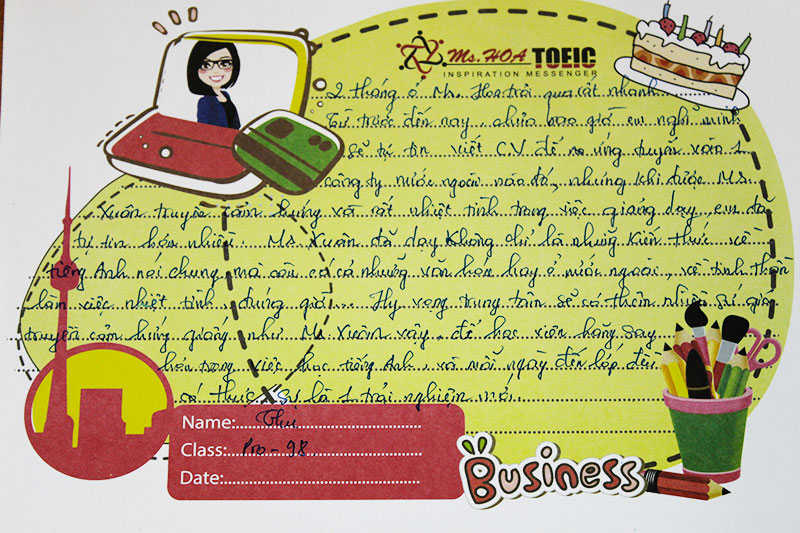 Ms. HOA TOEIC
INSPIRATION MESSENGER
2 tháng ở Ms. Hoa trôi qua rất nhanh
Từ trước đến nay, chưa bao giờ em nghĩ mình
sẽ tự tin viết CV để nộ ứng tuyển vào 1
công ty nước ngoài nào đó, nhưng khi được Ms
Xuân truyền cảm hứng và rất nhiệt tình trong việc giảng dạy, em đã
tự tin hơn nhiều. Ms Xuân đã dạy không chỉ là những kiến thức về
tiếng Anh nói chung mà còn có cả những văn hóa hay ở nước ngoài, về tinh thần
làm việc nhiệt tình, đúng giờ... Hy vọng trung tâm sẽ có thêm nhiều sứ giả
truyền cảm hứng giống như Ms Xuân vậy, để học viên hăng say
hơn trong việc học tiếng Anh, và mỗi ngày đến lớp đều
có thực sự là 1 trải nghiệm mới.
Name: Thu
Class: Pro - 98
Date:
Business